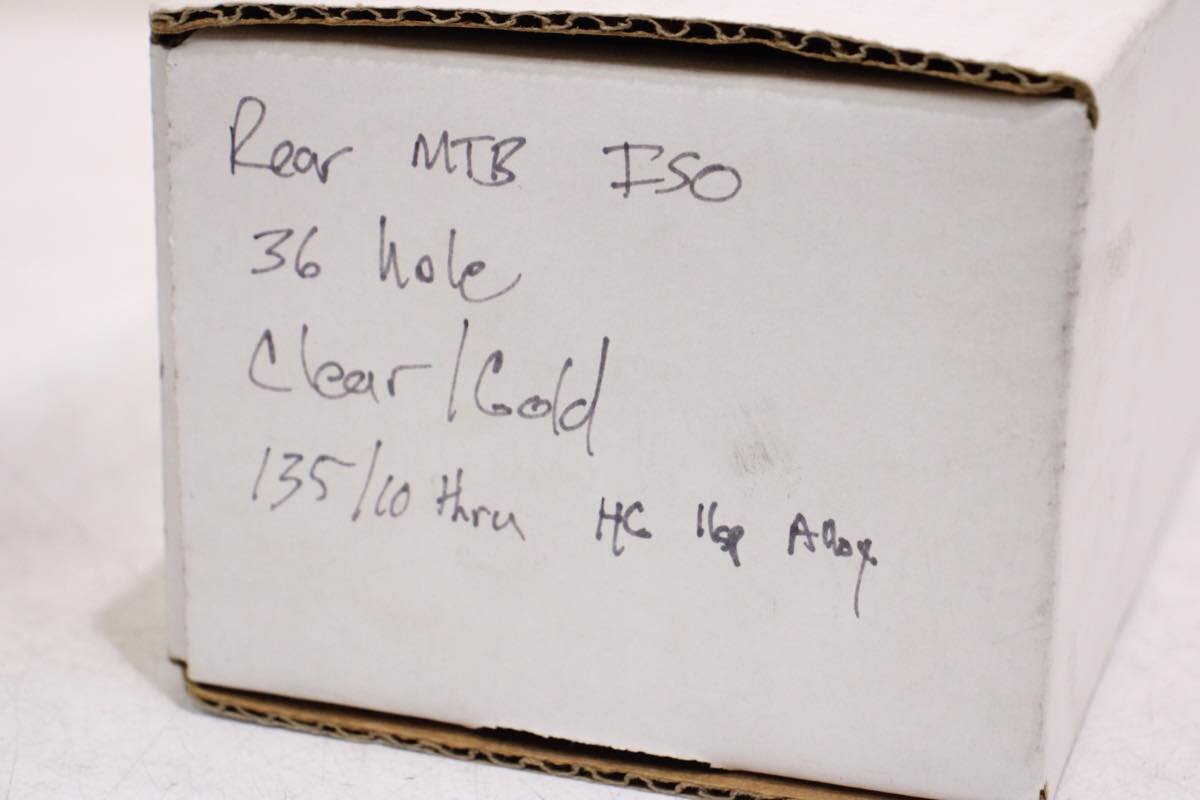 Rear MTB ISO
36 hole
Clear/Gold
135/10 thru HG 11sp Alloy